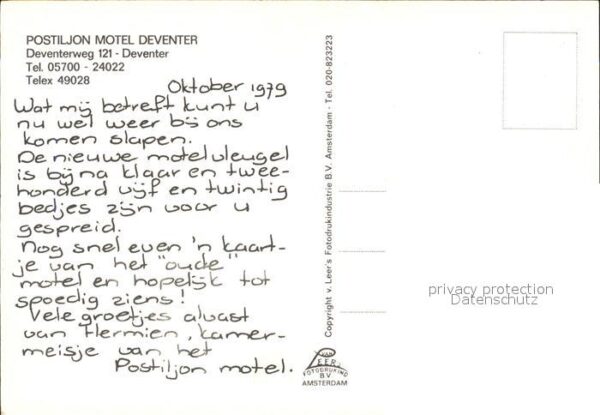 POSTILJON MOTEL DEVENTER
Deventerweg 121 - Deventer
Tel. 05700 - 24022
Telex 49028
Oktober 1979
Wat mij betreft kunt u
nu wel weer bij ons
komen slapen.
De nieuwe motelvleugel
is bijna klaar en twee-
honderd vijf en twintig
bedjes zijn voor u
gespreid.
Nog snel even 'n kaart-
je van het "oude"
motel en hopelijk tot
spoedig ziens!
Vele groetjes alvast
van Hermien, kamer-
meisje van het
Postiljon motel.
Copyright v. Leer's Fotodrukindustrie B.V. Amsterdam - Tel. 020-823223
VAN
LEER'S
FOTODRUKIND
BV
AMSTERDAM
privacy protection
Datenschutz